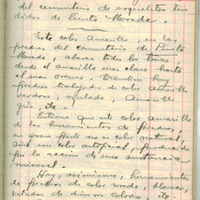 del cementerio de arquillos
de Cuenta Morada.
Este color Amarillo, en las
piedras del cementerio de
Morada, abarca todos los tonos,
desde el amarillo mas claro hasta
el mas oscuro. Tambien hay
piedras trabajadas de color Amarillo
verdoso, azulado, Amarillo
gris, etc.
Estimo que este color amarillo
de los heramientos de piedra,
en gran parte no es color natural,
sinó un color artificial, producido
por la acción de una sustancia
mineral.
Hay, asimismo, heramientas
de piedras de color rosado, blancas,
de diversos colores, etc.